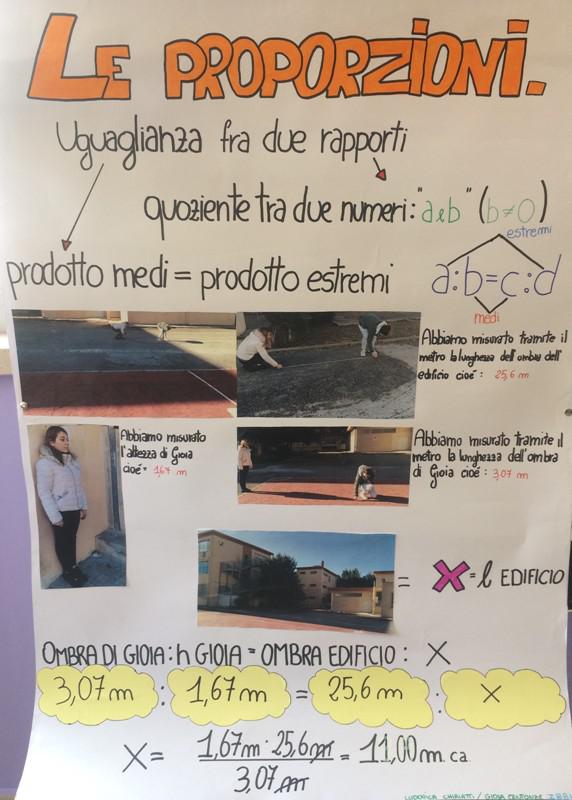 LE PROPORZIONI.
Uguaglianza fra due rapporti
quoziente tra due numeri: "a e b" (b≠0)
estremi
prodotto medi = prodotto estremi
a:b=c:d
medi
Abbiamo misurato tramite il
metro la lunghezza dell'ombra dell'
edificio cioè: 25,6 m
Abbiamo misurato
l'altezza di Gioia
cioè= 1,67 m
Abbiamo misurato tramite il
metro la lunghezza dell'ombra
di Gioia cioè: 3,07 m
= X = l EDIFICIO
OMBRA DI GIOIA : h GIOIA = OMBRA EDIFICIO : X
3,07 m : 1,67 m = 25,6 m : X
X = 1,67 m · 25,6 m = 11,00 m. ca.
3,07 m
LUDOVICA
/ GIOIA